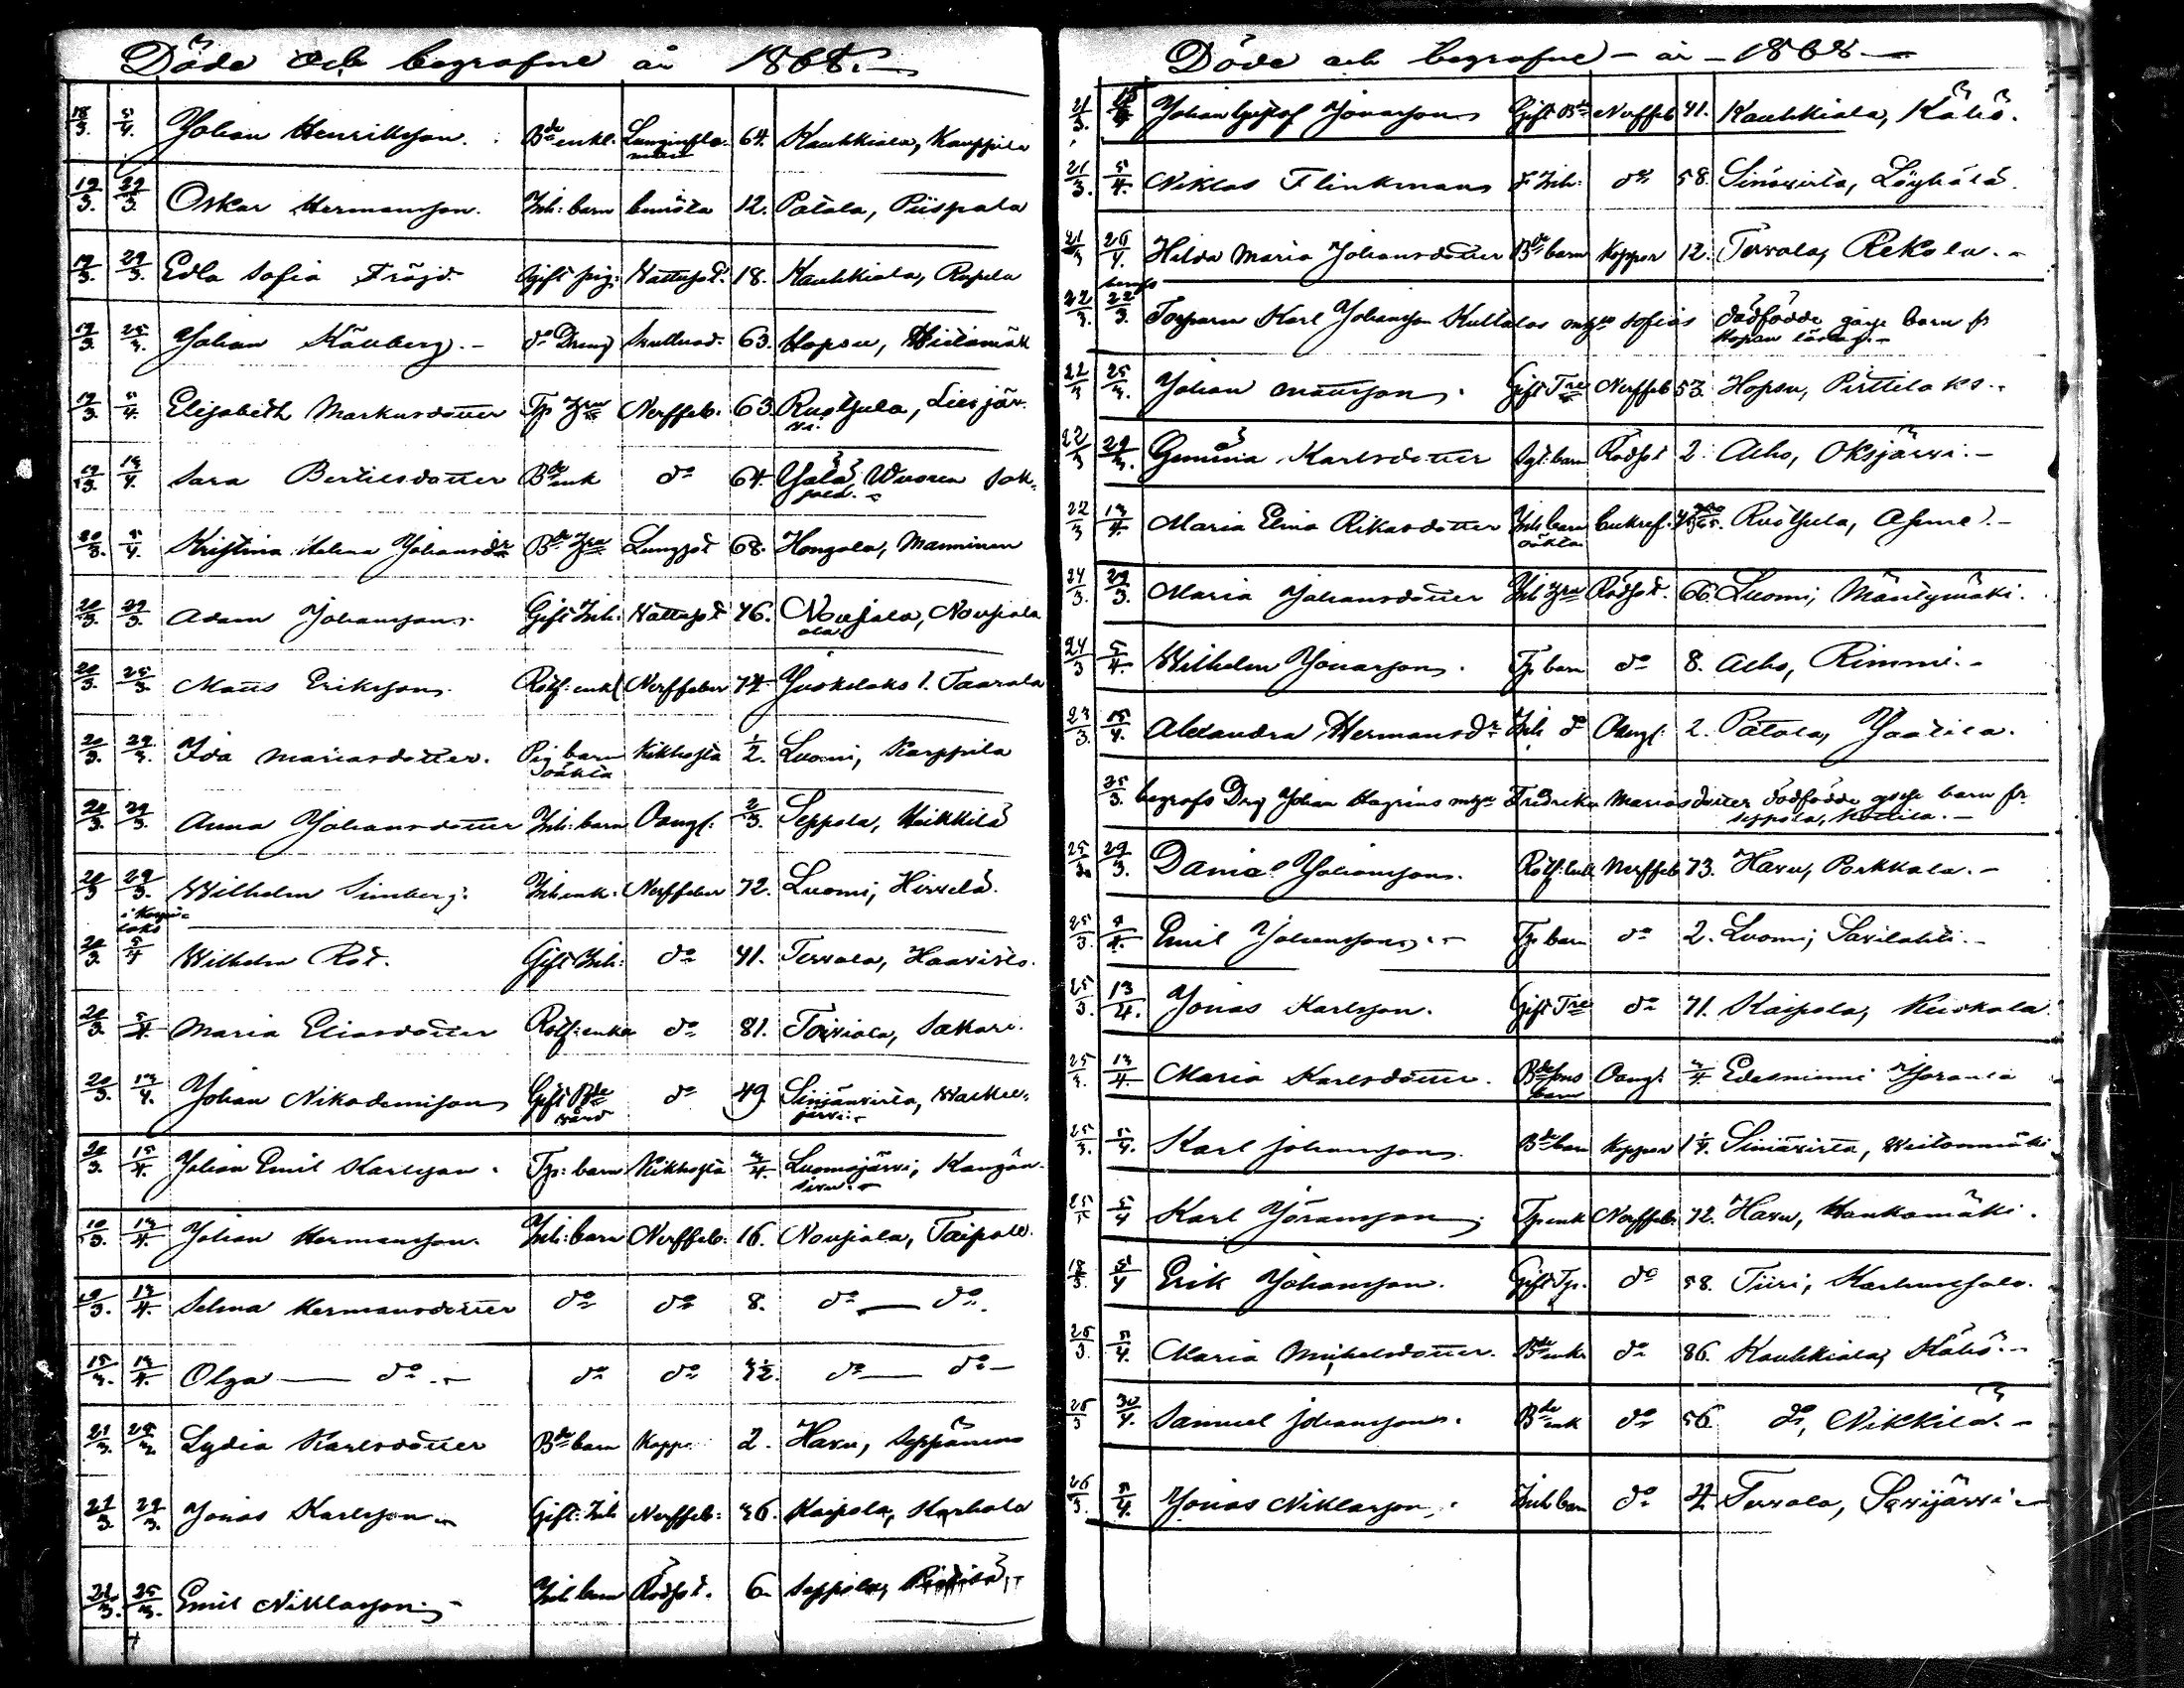 Döde och begrafne år 1868.
18/3. 5/4. Johan Henriksson. Bde enkl. Lunginfla- 64. Kauhkiala, Kauppila
mation
19/3. 29/3. Oskar Hermansson. Inh: barn 12. Patala, Piispala
19/3. 29/3. Edla Sofia Fröjd Gift pig: Nattsot. 18. Kauhkiala, Rapela
19/3. 25/3. Johan Kållberg.- do Dreng 63. Hopsu, Hiitämäk
19/3. 5/4. Elisabeth Markusdotter Tp Hru Nerffeb. 63. Ruotsula, Liesjär
vi.
19/3. 13/4. Sara Bertilsdotter Bde enk do 64. Ylä Wuoren Jok
20/3. 5/4. Kristina Helena Johansdr Bde Hru Lungsot 68. Hongola, Manninen
20/3. 29/3. Adam Johansson. Gift Inh: Nattsot 46. Noujala, Noujiala
20/3. 25/3. Matts Eriksson. Rotf: enkl Nerffeber 74. Juokslaks l. Taarala
20/3. 29/3. Ida Mariasdotter. Pig barn Kikhosta 1/2. Luomi, Karppila
oäkta
20/3. 29/3. Anna Johansdotter Inh: barn Oangf: 2/3. Seppola, Heikkilä
20/3 29/3. Wilhelm Simberg. Inh enk. Nerffeber 72. Luomi, Hirvelä.
20/3. 5/4 Wilhelm Rot. Gift Inh: do 41. Tervala, Haavisto.
20/3. 5/4. Maria Eliasdotter Rotf: enka do 81. Toiviala, Sakari.
20/3. 13/4. Johan Nikodemisson Gift Bde do 49. Sinisävirta, Waskee-
järvi.-
20/3. 15/4. Johan Emil Karlsson. Tp: barn Kikhosta 3/4. Luomajärvi, Kangän-
10/3. 13/4. Johan Hermansson. Inh: barn Nerffeb: 16. Noujiala, Taipale.
10/3. 13/4. Selma Hermansdotter do do 8. do — do.
15/3. 13/4. Olga — do.- do do 3 1/2. do — do -
21/3. 25/3. Lydia Karlsdotter Bde barn Kopp 2. Havu, Seppänens
21/3. 29/3. Jonas Karlsson.- Gift: Inh Nerffeb: 36. Kaipola, Karhola
21/3. 25/3. Emil Niklasson.- Inh barn Rödsot. 6. Seppola,
Döde och begrafne - år - 1868 -
21/3. Johan Gustaf Jonasson Gift Bde Nerffeb 41. Kauhkiala, Kähö.
21/3. 5/4. Niklas Flinkman F Inh: do 58. Sinisvirta, Löyhälä.
21/3 26/4. Hilda Maria Johansdotter Bde barn Koppor 12. Tervala, Rekola.-
22/3. 22/3. Torparn Karl Johansson Kultalas mhjm Sofias dödfödde gosse barn fr
22/3 25/3. Johan Mattsson. Gift Tre Nerffeb 53. Hopsu, Pirttilaks.-
22/3 29/3. Gemima Karlsdotter barn Rödsot 2. Alho, Oksjärvi.-
22/3 13/4. Maria Elina Rikasdotter Inh barn Ruotsula, Ahme.-
oäkta
24/3. 29/3. Maria Johansdotter Inh Hru Rödsot. 66. Luomi, Mäntymäki.
24/3 5/4. Wilhelm Jonasson. Tp barn do 8. Alho, Rimmi.-
23/3. 15/4. Alexandra Hermansdr Inh do Oangf. 2. Patala, Jaatila.
25/3. begrofs Drg Johan Hagrens mhjm Fredrika Mariasdotter dödfödde gosse barn fr
Seppola,
25/3 29/3. Daniel Johansson. Rotf: enk Nerffeb 73. Havu, Porkkala.-
25/3. 5/4. Emil Johansson.- Tp barn do 2. Luomi, Savilahti.-
25/3. 13/4. Jonas Karlsson. Gift Tre do 71. Kaipola, Kuokala
25/3. 13/4. Maria Karlsdotter. Bde sons Oangf. 3/4 Edesniemi Yöranta
barn
25/3. 5/4. Karl Johansson. Bde barn Koppor 1 1/4. Sinisvirta, Weitonmäki
25/3 5/4 Karl Jöransson Tp enk Nerffeb. 72. Havu, Hankamäki.
5/4 Erik Johansson. Gift Tp. do 58. Tiiri, Karhunsalo.
25/3 5/4. Maria Mihelsdotter. Bde enk do 86. Kauhkiala, Kähö.-
26/3 30/4. Samuel Johansson. Bde enk do 56. do, Nikkilä.-
26/3. 5/4. Jonas Niklasson. Inh barn do Tervala, Savijärvi -